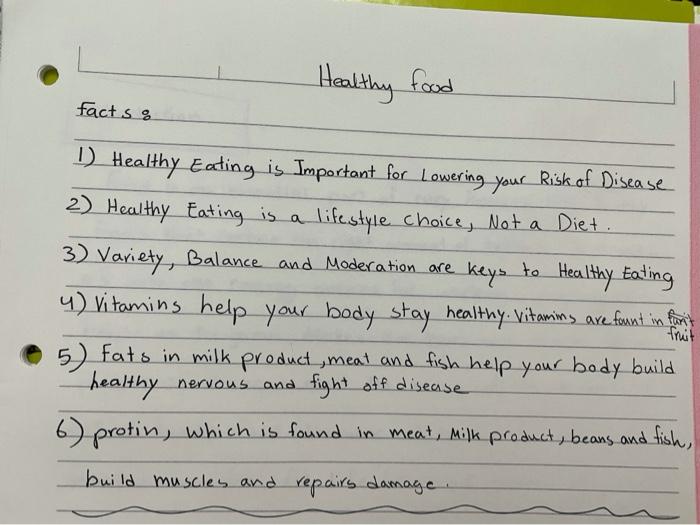 Healthy food
facts 8
1) Healthy Eating is Important for Lowering your Risk of Disease
2) Healthy Eating is a lifestyle choice, Not a Diet.
3) Variety, Balance and Moderation are keys to Healthy Eating
4) Vitamins help your body stay healthy. Vitamins are fount in
fruit
5) Fats in milk product, meat and fish help your body build
healthy nervous and fight off disease
6) protin, which is found in meat, Milk product, beans and fish,
build muscles and repairs damage.